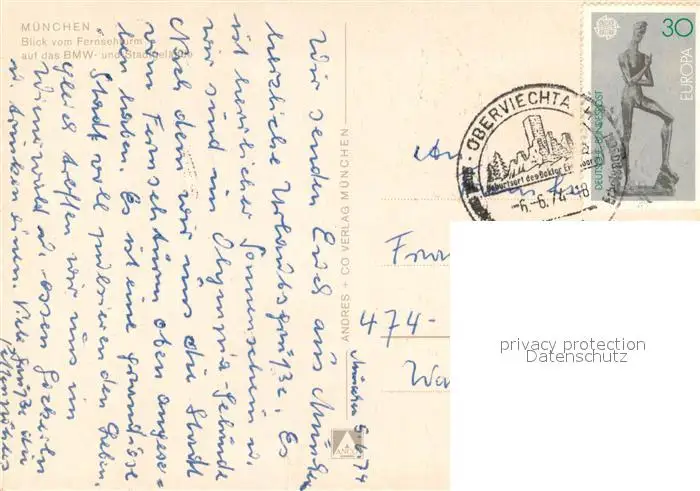 MÜNCHEN
Blick vom Fernsehturm
auf das BMW- und Stadtgelände
Wir senden Euch aus München
herzliche Urlaubsgrüße. Es
ist herrlicher Sonnenschein u.
wir sind im Olympia-Gelände
Nach dem wir uns die Stadt
vom Fernsehturm oben angese=
hen haben. Es ist eine grandiose
Stadt voll pulsierenden Leben.
gleich treffen wir uns im
Wienerwald u. essen
u. trinken einen. Viele Grüße
ANDRES + CO VERLAG MÜNCHEN
München 5.6.74
ANCO
An
474-
OBERVIECHTACH
Geburtsort des Doktor Eisenbart
-6.-6.74-8
30
EUROPA
DEUTSCHE BUNDESPOST
privacy protection
Datenschutz